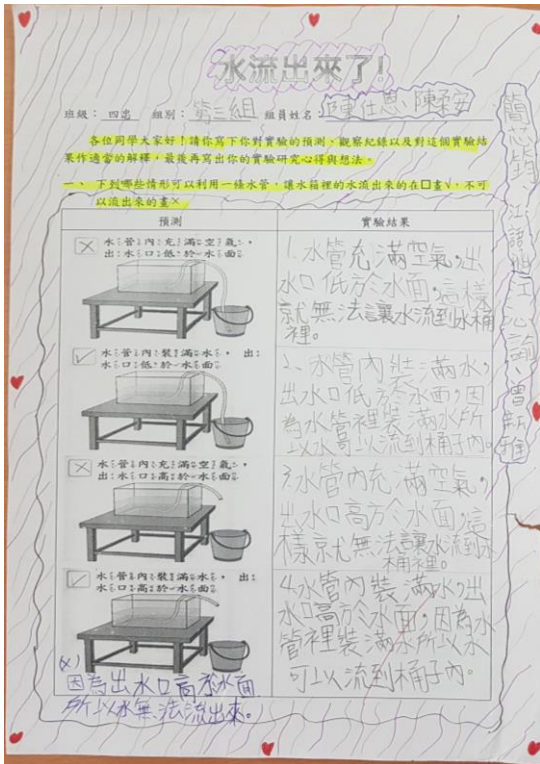 水流出來了!
班級： 四忠 組別： 第三組 組員姓名：陳仕恩、陳柔安
簡芯
江心諭、曾
各位同學大家好！請你寫下你對實驗的預測、觀察紀錄以及對這個實驗結
果作適當的解釋，最後再寫出你的實驗研究心得與想法。
一、 下列哪些情形可以利用一條水管，讓水箱裡的水流出來的在□畫√，不可
以流出來的畫×
預測
實驗結果
× 水管內充滿空氣，
出水口低於水面
1.水管充滿空氣，出
水口低於水面，這樣
就無法讓水流到水桶
裡。
√ 水管內裝滿水， 出
水口低於水面
2、水管內裝滿水，
出水口低於水面，因
為水管裡裝滿水所
以水可以流到桶子內。
× 水管內充滿空氣，
出水口高於水面
3.水管內充滿空氣，
出水口高於水面，這
樣就無法讓水流到水
桶裡。
√ 水管內裝滿水， 出
水口高於水面
4.水管內裝滿水，出
水口高於水面，因為水
管裡裝滿水所以水
可以流到桶子內。
(x)
因為出水口高於水面
所以水無法流出來。